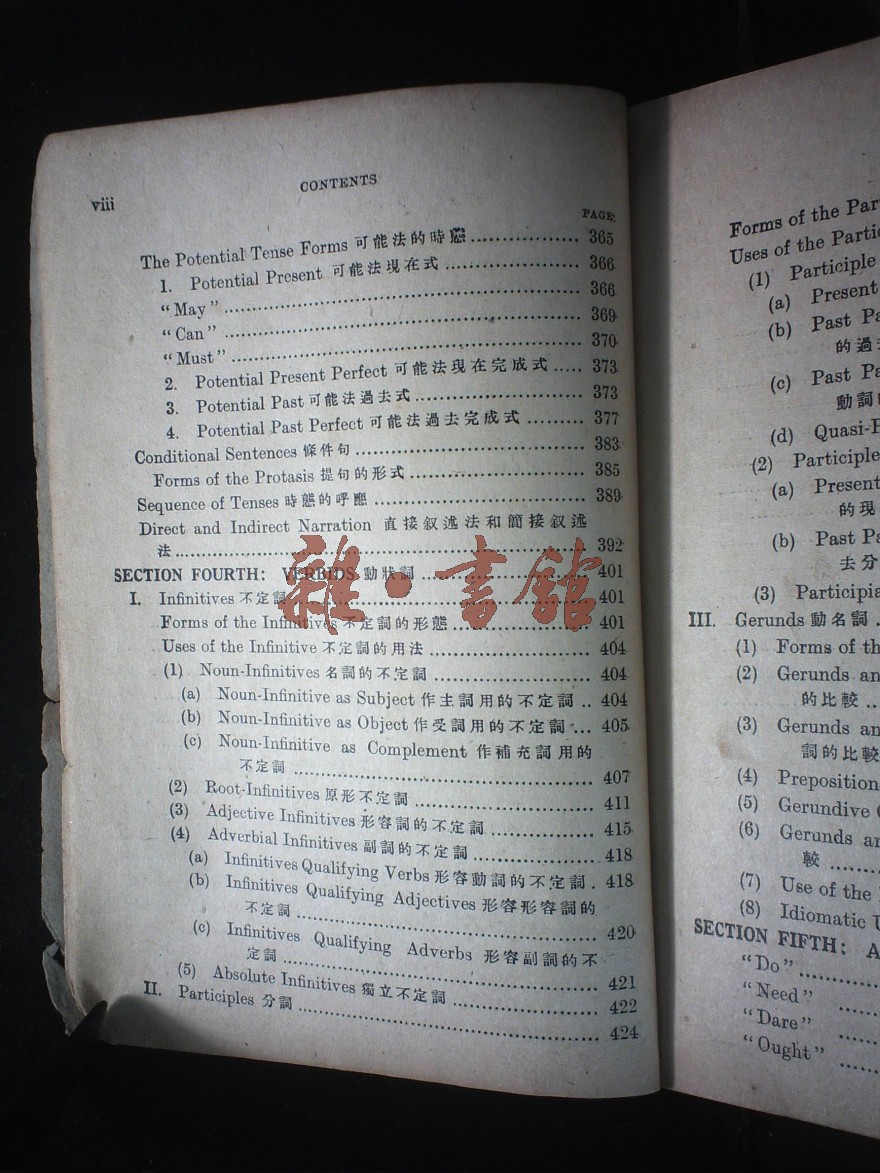 viii
CONTENTS
PAGE
The Potential Tense Forms 可能法的時態 ................. 365
1. Potential Present 可能法現在式 ..................... 366
"May" ................................................ 366
"Can" ................................................ 369
"Must" ............................................... 370
2. Potential Present Perfect 可能法現在完成式 ..... 373
3. Potential Past 可能法過去式 ......................... 373
4. Potential Past Perfect 可能法過去完成式 ......... 377
Conditional Sentences 條件句 ............................ 383
Forms of the Protasis 提句的形式 ..................... 385
Sequence of Tenses 時態的呼應 .......................... 389
Direct and Indirect Narration 直接叙述法和簡接叙述
法 ................................................... 392
SECTION FOURTH: VERBIDS 動狀詞 ..................... 401
I. Infinitives 不定詞 ................................... 401
Forms of the Infinitives 不定詞的形態 ................ 401
Uses of the Infinitive 不定詞的用法 .................. 404
(1) Noun-Infinitives 名詞的不定詞 .................... 404
(a) Noun-Infinitive as Subject 作主詞用的不定詞 .. 404
(b) Noun-Infinitive as Object 作受詞用的不定詞 ... 405
(c) Noun-Infinitive as Complement 作補充詞用的
不定詞 ............................................. 407
(2) Root-Infinitives 原形不定詞 ...................... 411
(3) Adjective Infinitives 形容詞的不定詞 ............. 415
(4) Adverbial Infinitives 副詞的不定詞 ............... 418
(a) Infinitives Qualifying Verbs 形容動詞的不定詞 . 418
(b) Infinitives Qualifying Adjectives 形容形容詞的
不定詞 ............................................. 420
(c) Infinitives Qualifying Adverbs 形容副詞的不
定詞 ............................................... 421
(5) Absolute Infinitives 獨立不定詞 .................. 422
II. Participles 分詞 .................................... 424
雜·書館
Forms of the
Uses of the
(1) Participle
(a) Present
(b) Past
的過
(c) Past
動詞
(d)
(2) Participle
(a) Present
的現
(b) Past
去分
(3)
III. Gerunds 動名詞 .
(1) Forms of
(2) Gerunds
的比較 ...
(3) Gerunds
詞的比較
(4)
(5) Gerundive
(6) Gerunds
較 ........
(7) Use of the
(8) Idiomatic
SECTION FIFTH:
"Do" ..........
"Need" ........
"Dare" ........
"Ought" .......